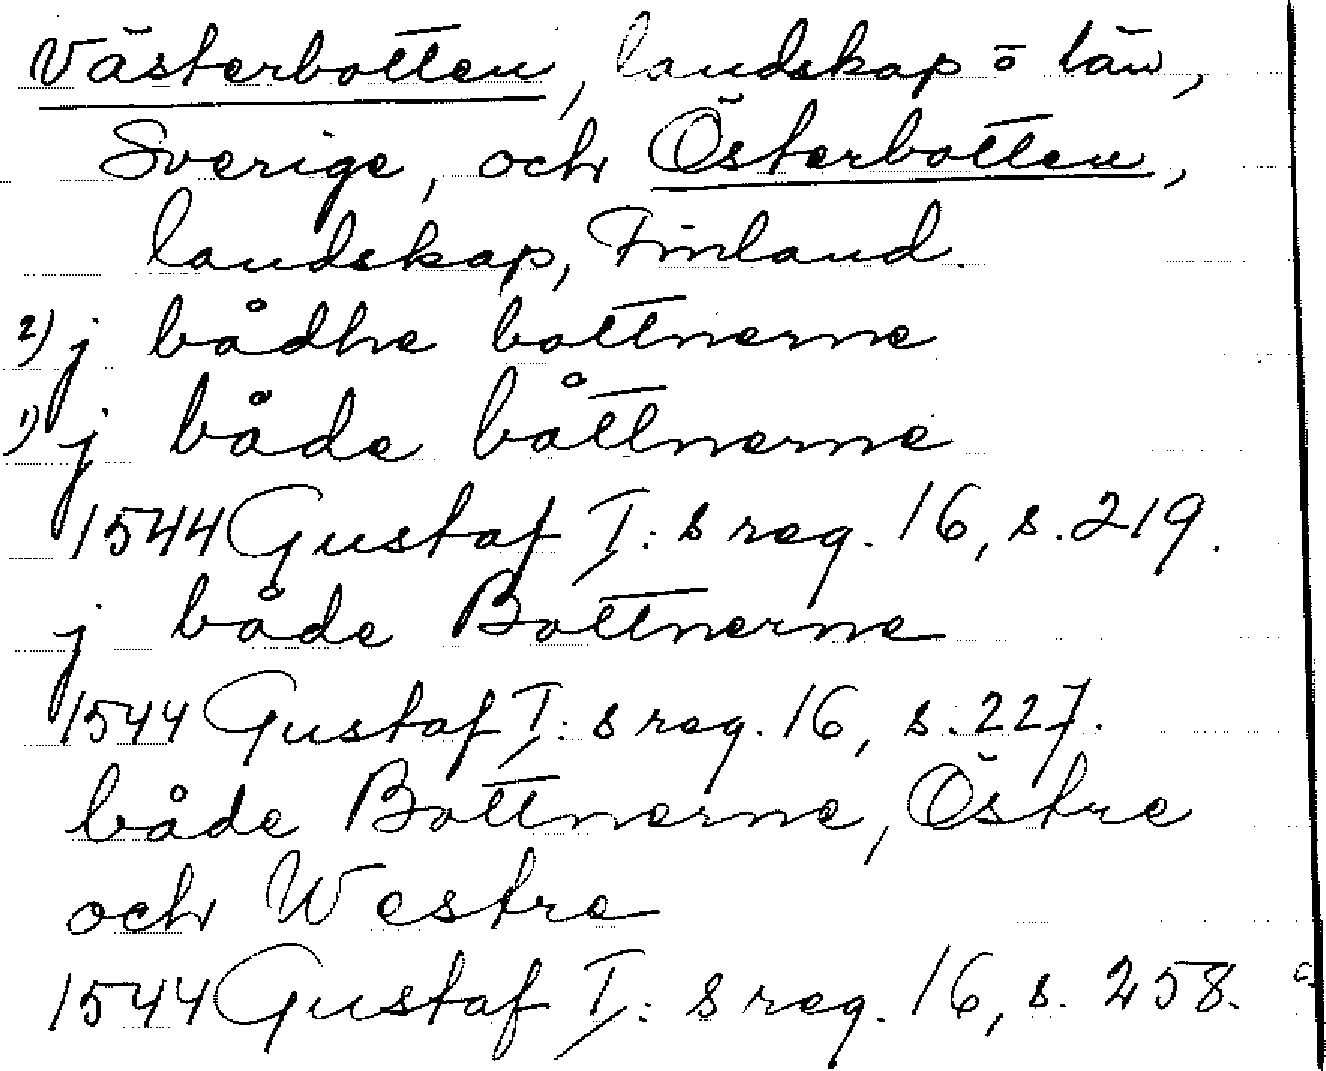 Västerbotten, landskap o län,
Sverige, och Österbotten,
landskap, Finland.
2) j bådhe bottnerne
1) j både båttnerne
1544 Gustaf I:s reg. 16, s. 219.
j både Bottnerne
1544 Gustaf I:s reg. 16, s. 227.
både Bottnerne, Östre
och Westre
1544 Gustaf I:s reg. 16, s. 258.